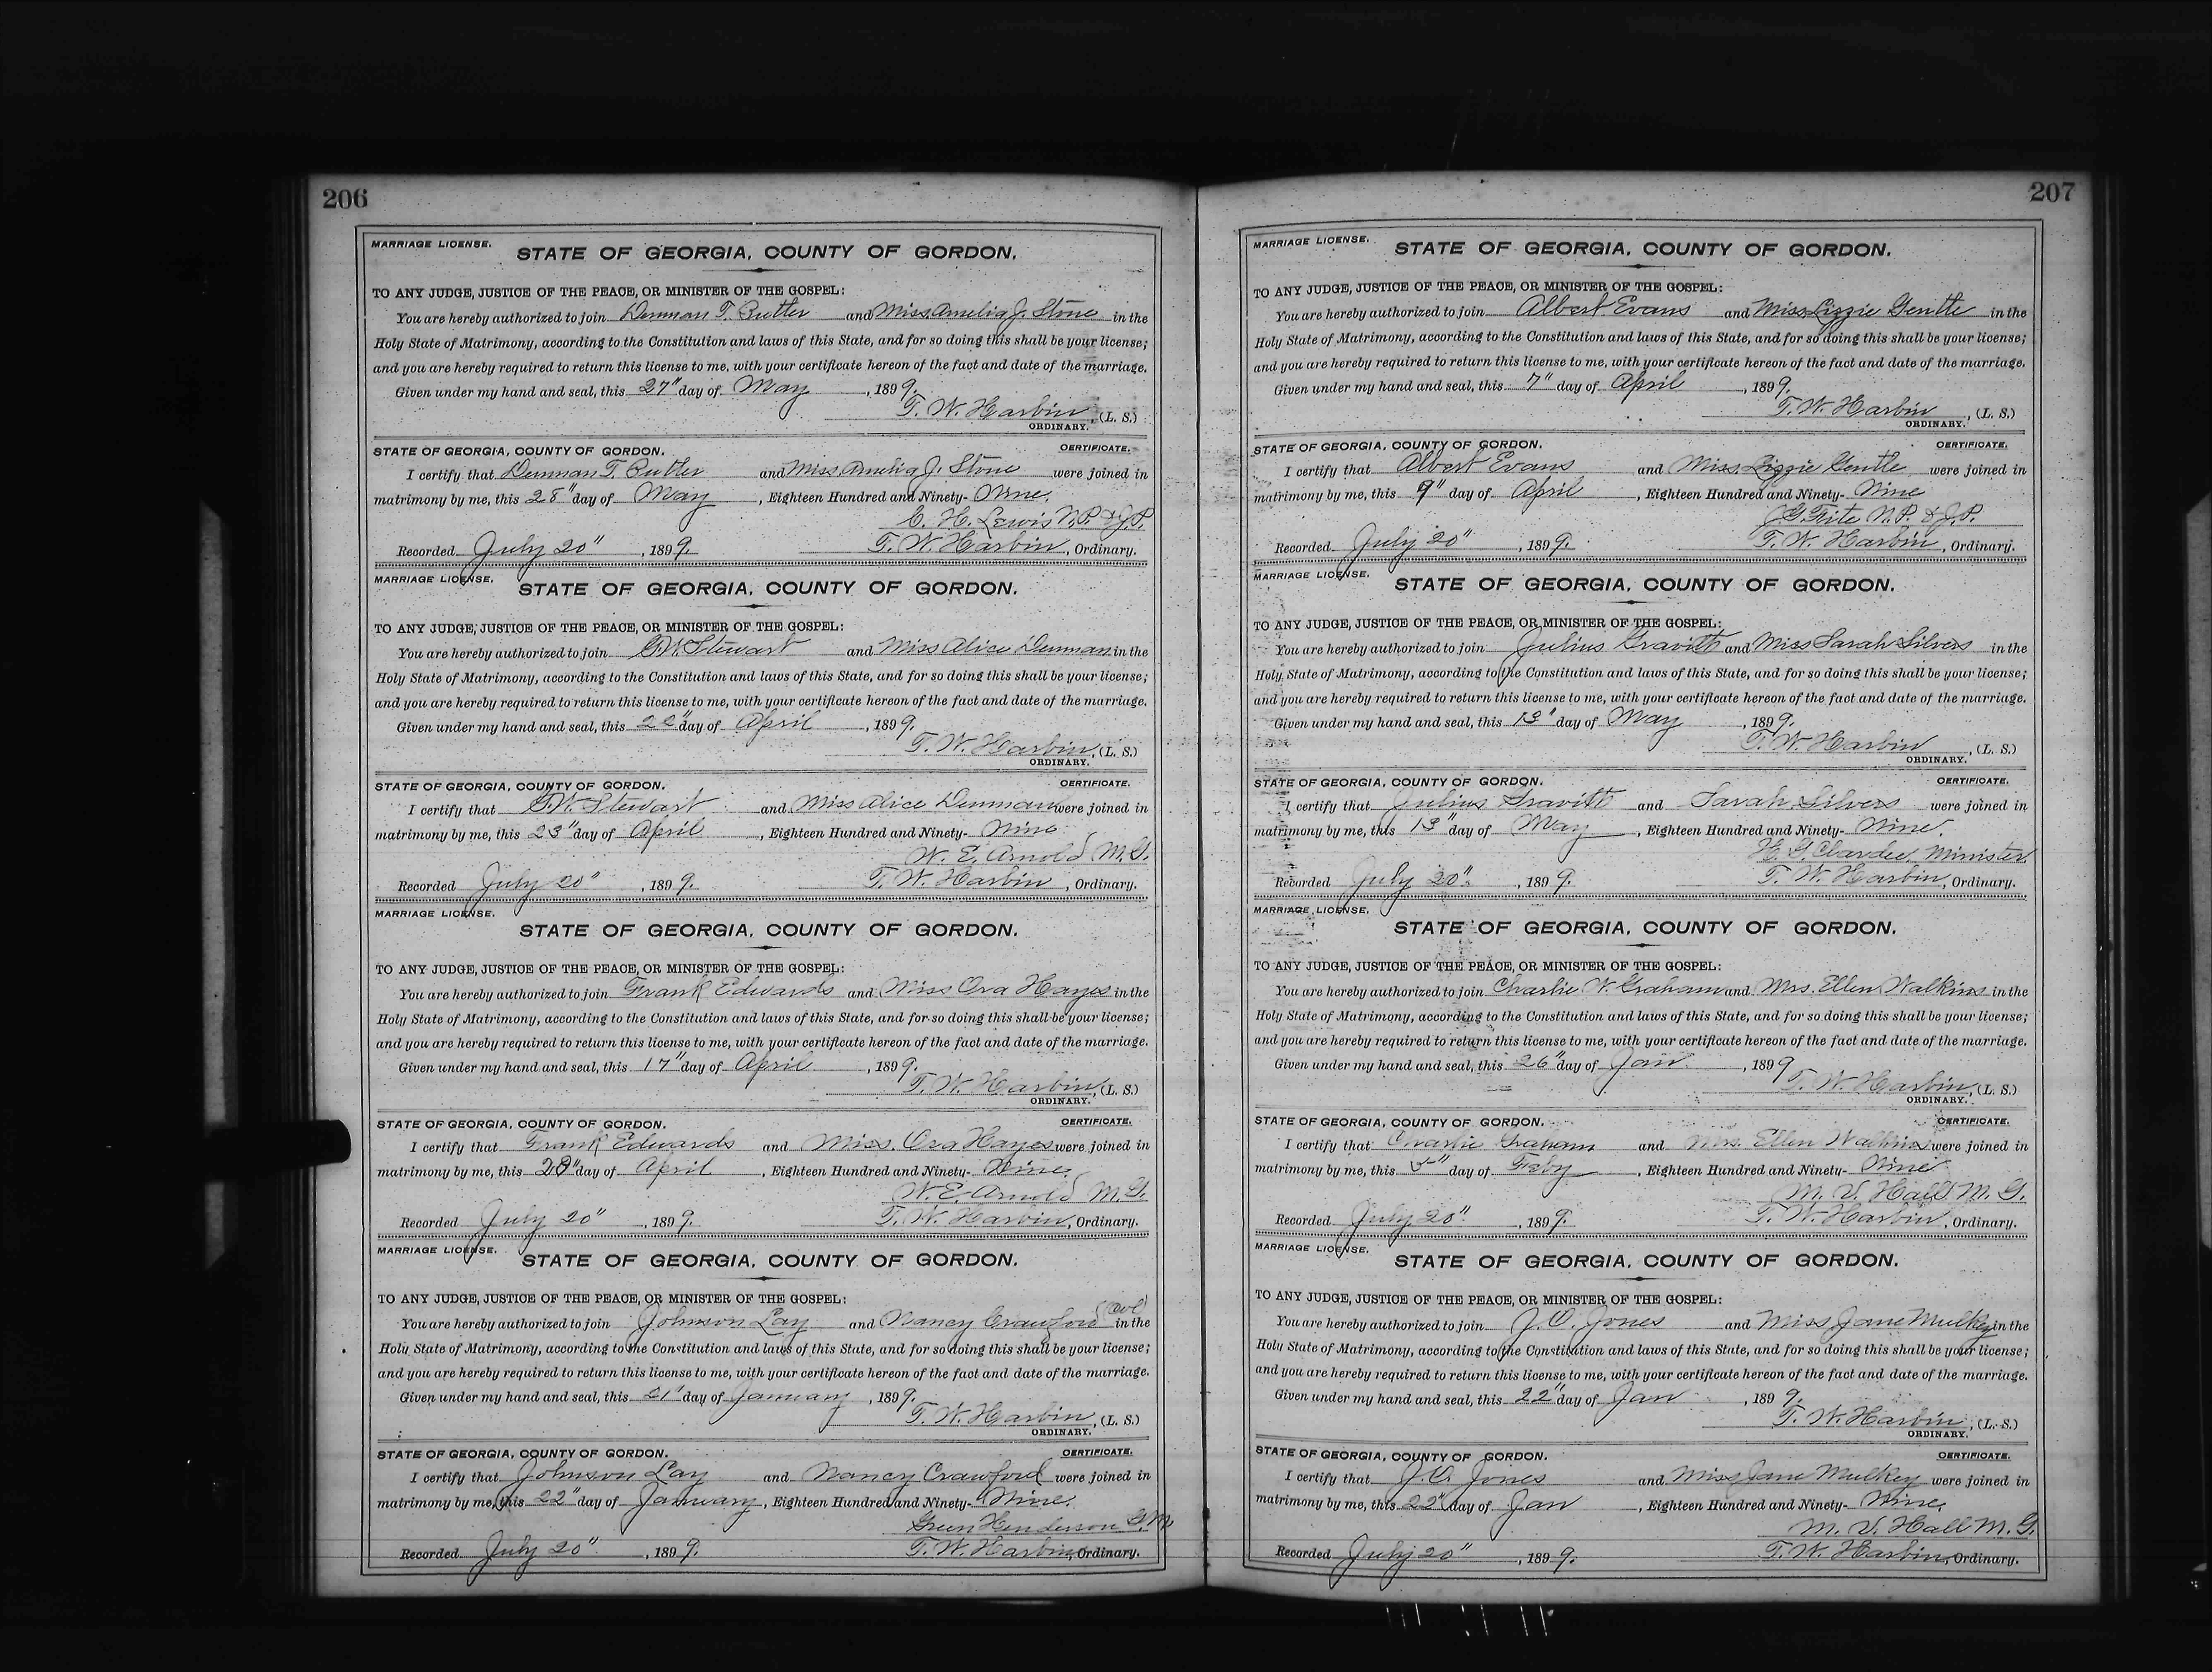 206
MARRIAGE LICENSE.
STATE OF GEORGIA, COUNTY OF GORDON.
TO ANY JUDGE, JUSTICE OF THE PEACE, OR MINISTER OF THE GOSPEL:
You are hereby authorized to join Denman T. Butler and Miss Amelia J. Stone in the
Holy State of Matrimony, according to the Constitution and laws of this State, and for so doing this shall be your license;
and you are hereby required to return this license to me, with your certificate hereon of the fact and date of the marriage.
Given under my hand and seal, this 27" day of May, 1899.
T. W. Harbin, (L. S.)
ORDINARY.
STATE OF GEORGIA, COUNTY OF GORDON. CERTIFICATE.
I certify that Denman T. Butler and Miss Amelia J. Stone were joined in
matrimony by me, this 28" day of May, Eighteen Hundred and Ninety- Nine.
C. H. Lewis N.P. & J.P.
Recorded July 20", 1899. T. W. Harbin, Ordinary.
MARRIAGE LICENSE.
STATE OF GEORGIA, COUNTY OF GORDON.
TO ANY JUDGE, JUSTICE OF THE PEACE, OR MINISTER OF THE GOSPEL:
You are hereby authorized to join Stewart and Miss Alice Denman in the
Holy State of Matrimony, according to the Constitution and laws of this State, and for so doing this shall be your license;
and you are hereby required to return this license to me, with your certificate hereon of the fact and date of the marriage.
Given under my hand and seal, this 22" day of April, 1899.
T. W. Harbin, (L. S.)
ORDINARY.
STATE OF GEORGIA, COUNTY OF GORDON. CERTIFICATE.
I certify that Stewart and Miss Alice Denman were joined in
matrimony by me, this 23" day of April, Eighteen Hundred and Ninety- Nine
W. E. Arnold M.G.
Recorded July 20", 1899. T. W. Harbin, Ordinary.
MARRIAGE LICENSE.
STATE OF GEORGIA, COUNTY OF GORDON.
TO ANY JUDGE, JUSTICE OF THE PEACE, OR MINISTER OF THE GOSPEL:
You are hereby authorized to join Frank Edwards and Miss Ora Hayes in the
Holy State of Matrimony, according to the Constitution and laws of this State, and for so doing this shall be your license;
and you are hereby required to return this license to me, with your certificate hereon of the fact and date of the marriage.
Given under my hand and seal, this 17" day of April, 1899.
T. W. Harbin, (L. S.)
ORDINARY.
STATE OF GEORGIA, COUNTY OF GORDON. CERTIFICATE.
I certify that Frank Edwards and Miss. Ora Hayes were joined in
matrimony by me, this day of April, Eighteen Hundred and Ninety- Nine.
W. E. Arnold M.G.
Recorded July 20", 1899. T. W. Harbin, Ordinary.
MARRIAGE LICENSE.
STATE OF GEORGIA, COUNTY OF GORDON.
TO ANY JUDGE, JUSTICE OF THE PEACE, OR MINISTER OF THE GOSPEL:
You are hereby authorized to join Johnson Lay and Nancy Crawford (Col) in the
Holy State of Matrimony, according to the Constitution and laws of this State, and for so doing this shall be your license;
and you are hereby required to return this license to me, with your certificate hereon of the fact and date of the marriage.
Given under my hand and seal, this 21" day of January, 1899.
T. W. Harbin, (L. S.)
ORDINARY.
STATE OF GEORGIA, COUNTY OF GORDON. CERTIFICATE.
I certify that Johnson Lay and Nancy Crawford were joined in
matrimony by me, this 22" day of January, Eighteen Hundred and Ninety- Nine.
Green Henderson G.M.
Recorded July 20", 1899. T. W. Harbin, Ordinary.
207
MARRIAGE LICENSE.
STATE OF GEORGIA, COUNTY OF GORDON.
TO ANY JUDGE, JUSTICE OF THE PEACE, OR MINISTER OF THE GOSPEL:
You are hereby authorized to join Albert Evans and Miss Lizzie Gentle in the
Holy State of Matrimony, according to the Constitution and laws of this State, and for so doing this shall be your license;
and you are hereby required to return this license to me, with your certificate hereon of the fact and date of the marriage.
Given under my hand and seal, this 7" day of April, 1899.
T. W. Harbin, (L. S.)
ORDINARY.
STATE OF GEORGIA, COUNTY OF GORDON. CERTIFICATE.
I certify that Albert Evans and Miss. Lizzie Gentle were joined in
matrimony by me, this 9" day of April, Eighteen Hundred and Ninety- Nine
Fite N.P. & J.P.
Recorded July 20", 1899. T. W. Harbin, Ordinary.
MARRIAGE LICENSE.
STATE OF GEORGIA, COUNTY OF GORDON.
TO ANY JUDGE, JUSTICE OF THE PEACE, OR MINISTER OF THE GOSPEL:
You are hereby authorized to join Julius Gravitt and Miss Sarah Silvers in the
Holy State of Matrimony, according to the Constitution and laws of this State, and for so doing this shall be your license;
and you are hereby required to return this license to me, with your certificate hereon of the fact and date of the marriage.
Given under my hand and seal, this 13" day of May, 1899.
T. W. Harbin, (L. S.)
ORDINARY.
STATE OF GEORGIA, COUNTY OF GORDON. CERTIFICATE.
I certify that Julius Gravitt and Sarah Silvers were joined in
matrimony by me, this 13" day of May, Eighteen Hundred and Ninety- Nine.
Minister
Recorded July 20", 1899. T. W. Harbin, Ordinary.
MARRIAGE LICENSE.
STATE OF GEORGIA, COUNTY OF GORDON.
TO ANY JUDGE, JUSTICE OF THE PEACE, OR MINISTER OF THE GOSPEL:
You are hereby authorized to join Charlie W. Graham and Mrs. Ellen Watkins in the
Holy State of Matrimony, according to the Constitution and laws of this State, and for so doing this shall be your license;
and you are hereby required to return this license to me, with your certificate hereon of the fact and date of the marriage.
Given under my hand and seal, this 26" day of Jan., 1899
T. W. Harbin, (L. S.)
ORDINARY.
STATE OF GEORGIA, COUNTY OF GORDON. CERTIFICATE.
I certify that Charlie Graham and Mrs. Ellen Watkins were joined in
matrimony by me, this 5" day of Feby, Eighteen Hundred and Ninety- Nine
M. V. Hall M. G.
Recorded July 20", 1899. T. W. Harbin, Ordinary.
MARRIAGE LICENSE.
STATE OF GEORGIA, COUNTY OF GORDON.
TO ANY JUDGE, JUSTICE OF THE PEACE, OR MINISTER OF THE GOSPEL:
You are hereby authorized to join J. O. Jones and Miss Jane Mulkey in the
Holy State of Matrimony, according to the Constitution and laws of this State, and for so doing this shall be your license;
and you are hereby required to return this license to me, with your certificate hereon of the fact and date of the marriage.
Given under my hand and seal, this 22" day of Jan, 1899.
T. W. Harbin, (L. S.)
ORDINARY.
STATE OF GEORGIA, COUNTY OF GORDON. CERTIFICATE.
I certify that J. O. Jones and Miss Jane Mulkey were joined in
matrimony by me, this 22" day of Jan, Eighteen Hundred and Ninety- Nine.
M. V. Hall M. G.
Recorded July 20", 1899. T. W. Harbin, Ordinary.